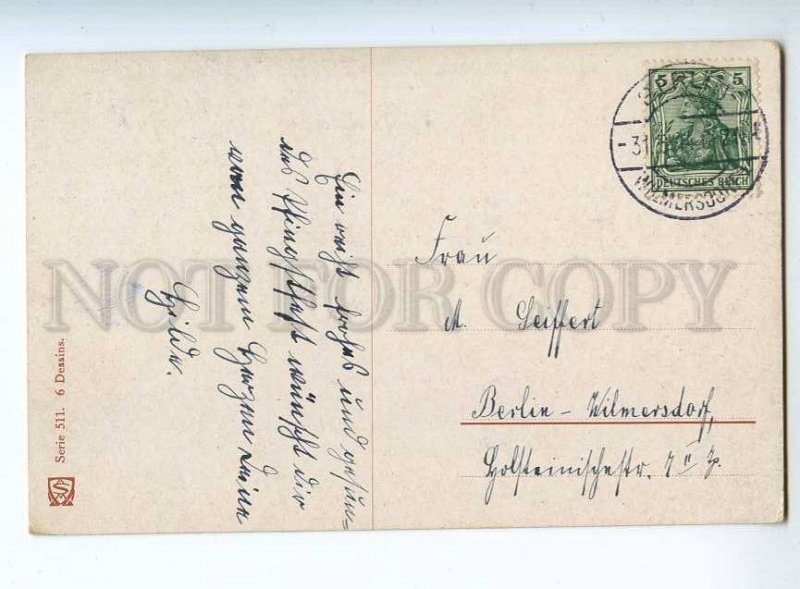 Ein recht frohes und gesun-
des Pfingstfest wünscht dir
von ganzem Herzen Deine
Hilde.
Serie 511. 6 Dessins.
5 5
DEUTSCHES REICH
BERLIN
WILMERSDORF
Frau
M. Seiffert
Berlin - Wilmersdorf,
Holsteinischestr.
NOT FOR COPY